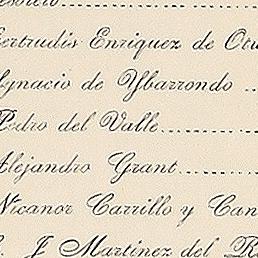 Gertrudis Enriquez de
Ygnacio de Ybarrondo ..
Pedro del Valle..............
Alejandro Grant............
Nicanor Carrillo y
J Martinez del